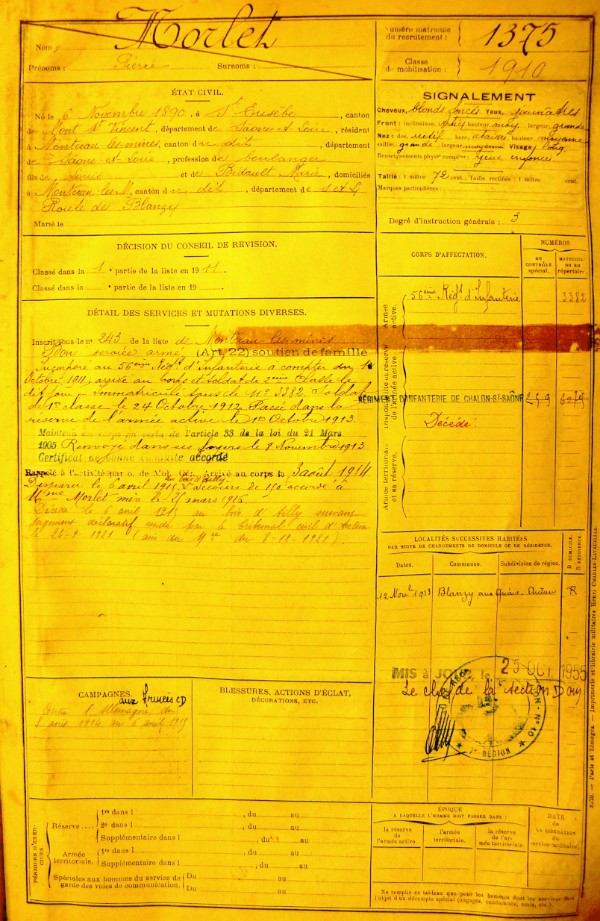 Nom : Morlet
Prénoms : Pierre Surnoms :
Numéro matricule du recrutement : 1375
Classe de mobilisation : 1910
ÉTAT CIVIL.
Né le 6 Novembre 1890, à St Eusèbe, canton
de Mont St Vincent, département de Saône et Loire, résident
à Montceau les mines, canton de dit, département
de Saône et Loire, profession de boulanger
fils de et de Bidault Marie, domiciliés
à Montceau les M., canton de dit, département de S & L
Route de Blanzy
Marié le
SIGNALEMENT
Cheveux, blonds foncés Yeux,
Front : inclinaison hauteur moy largeur, grande
Nez : dos, rectil base, hauteur, moyenne
saillie, grande, largeur, moyenne Visage, long
Renseignements physio compl : yeux enfoncés
Taille : 1 mètre 72 cent.; Taille rectifiée : 1 mètre cent.
Marques particulières :
Degré d'instruction générale : 3
DÉCISION DU CONSEIL DE REVISION.
Classé dans la 1 e partie de la liste en 1911
Classé dans la e partie de la liste en 19
DÉTAIL DES SERVICES ET MUTATIONS DIVERSES.
Inscrit sous le n° 243 de la liste de Montceau les mines
Bon service armé (Art 22) soutien de famille
Incorporé au 56ème Régt d'Infanterie à compter du
Octobre 1911, arrivé au corps et soldat de 2ème classe le
dit jour - Immatriculé sous le N° 3382 Soldat
de 1re classe le 24 Octobre 1912 Passé dans la
réserve de l'armée active le 1er Octobre 1913.
Maintenu au corps en vertu de l'article 33 de la loi du 21 Mars
1905 Renvoyé dans ses foyers le 8 Novembre 1913
Certificat de bonne conduite accordé
Rappelé à l'activité Arrivé au corps le 3 août 1914
Disparu le 6 avril 1915 au bois d'Ailly. Secours de 150 accordé à
Mme Morlet mère le 21 mars 1916
Décédé le 6 avril 1915 au bois d'Ailly suivant
jugement déclaratif rendu par le tribunal civil d'Autun
le 26-9 1921 (avis du Mre du 8-12-1921)
CORPS D'AFFECTATION.
NUMÉROS
AU CONTRÔLE spécial.
MATRICULE OU AU répertoire.
Armée active.
56ème Régt d'Infanterie 3382
Disponibilité et réserve de l'armée active.
RÉGIMENT D'INFANTERIE DE CHALON-S/-SAÔNE
Décédé
Armée territoriale et sa réserve.
LOCALITÉS SUCCESSIVES HABITÉES
PAR SUITE DE CHANGEMENTS DE DOMICILE OU DE RÉSIDENCE.
Dates. Communes. Subdivision de région. D DOMICILE. R RÉSIDENCE.
12 Novbre 1913 Blanzy Autun R
MIS à JOUR, le 25 OCT 1955
Le chef de la section
7e RÉGION
CAMPAGNES.
Contre l'Allemagne du
août 1914 au 6 avril 1915
BLESSURES, ACTIONS D'ÉCLAT, DÉCORATIONS, ETC.
PÉRIODES D'EXERCICES
Réserve
1re dans l , du au
2e dans l , du au
Supplémentaire dans l , du au
Armée territoriale.
1re dans l , du au
Supplémentaire dans l , du au
Spéciales aux hommes du service de garde des voies de communication.
Du au
Du au
ÉPOQUE
À LAQUELLE L'HOMME DOIT PASSER DANS :
la réserve de l'armée active.
l'armée territoriale.
la réserve de l'armée territoriale.
DATE DE LA LIBÉRATION du service militaire.
Ne remplir ce tableau que pour les hommes dont les services font l'objet d'un décompte spécial (engagés, condamnés, omis, etc.)
Paris et Limoges. — Imprimerie et librairie militaires Henri CHARLES-LAVAUZELLE.